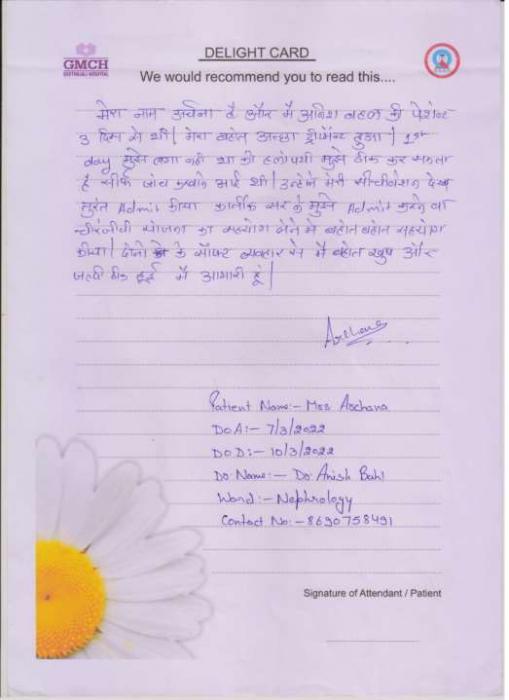 GMCH
GEETANJALI HOSPITAL
DELIGHT CARD
We would recommend you to read this....
मेरा नाम अर्चना है और मैं अनिश बहल की पेशेन्ट
3 दिन से थी। मेरा बहोत अच्छा ट्रीटमेन्ट हुआ। 1st
day मुझे लगा नही था की हेलोपथी मुझे ठीक कर सकता
है सीर्फ जांच करवाने आई थी। उन्होने मेरी सीचीवेशन देख
तुरंत Admit कीया कार्तीक सर के मुझे Admit करने वा
चीरंजीवी योजना का सहयोग लेने मे बहोत बहोत सहयोग
कीया। दोनो के सॉफ्ट व्यवहार से मै बहोत खुष और
जल्दी ठीक हुई मै आभारी हूं।
Archana
Patient Name:- Mrs Archana
DOA:- 7/3/2022
DOD:- 10/3/2022
Dr Name:- Dr Anish Bahl
Ward:- Nephrology
Contact No:- 8690758491
Signature of Attendant / Patient